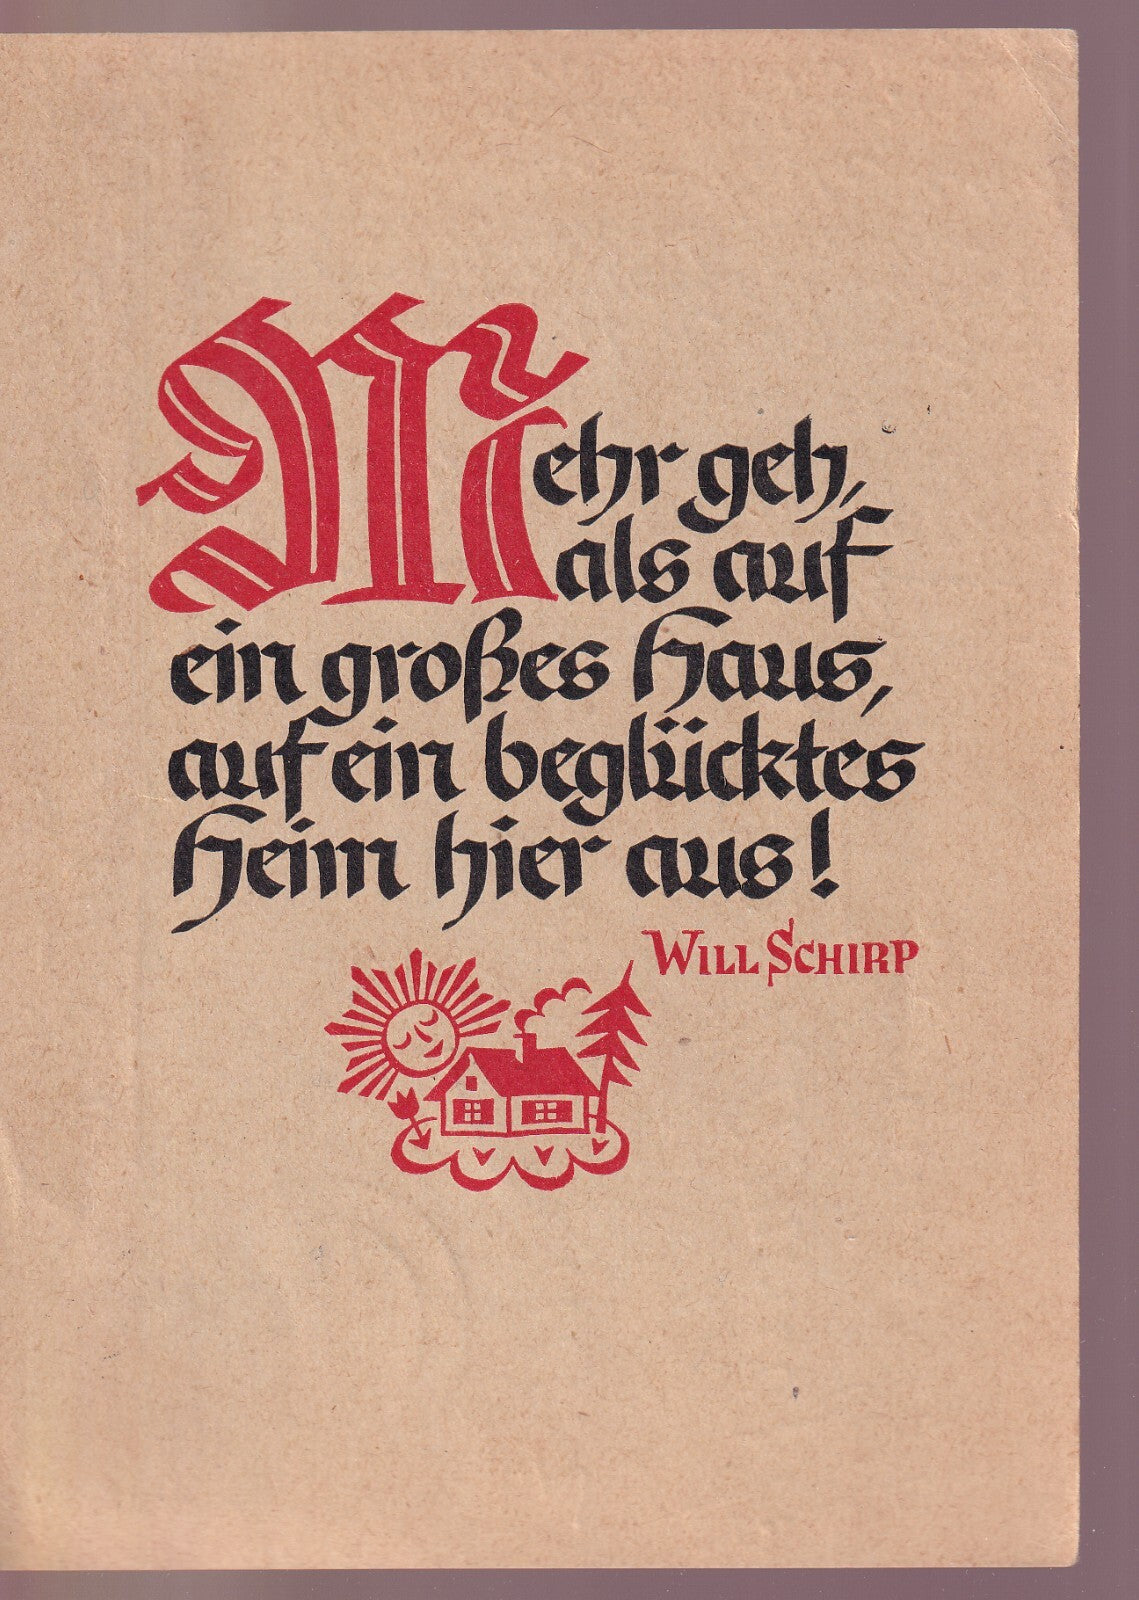 Mehr geh,
als auf
ein großes Haus,
auf ein beglücktes
Heim hier aus!
WILL SCHIRP